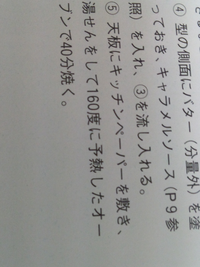 ④ 型の側面にバター（分量外）を塗
っておき、キャラメルソース（P９参
照）を入れ、③を流し入れる。
⑤ 天板にキッチンペーパーを敷き、
湯せんをして160度に予熱したオー
ブンで40分焼く。